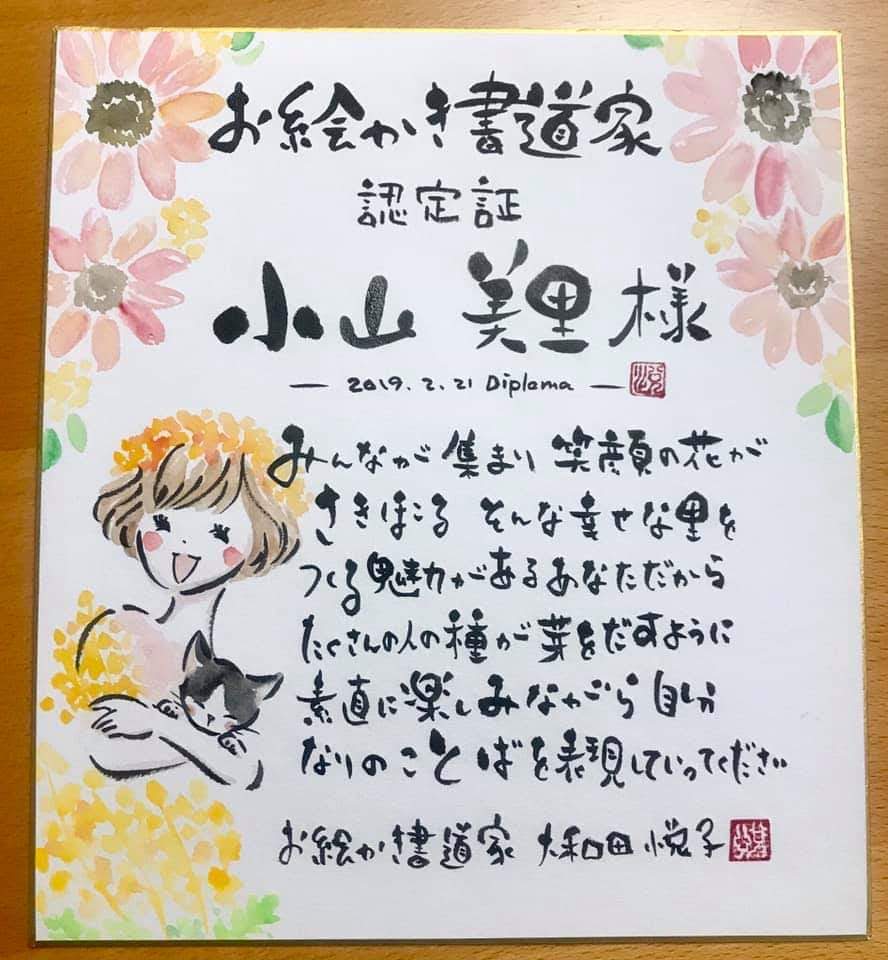 お絵かき書道家
認定証
小山 美里 様
— 2019.2.21 Diploma — 悦
みんなが 集まり 笑顔の花が
さきほこる そんな幸せな里を
つくる魅力があるあなただから
たくさんの人の種が 芽をだすように
素直に楽しみながら 自分
なりのことばを表現していってください
お絵かき書道家 大和田 悦子